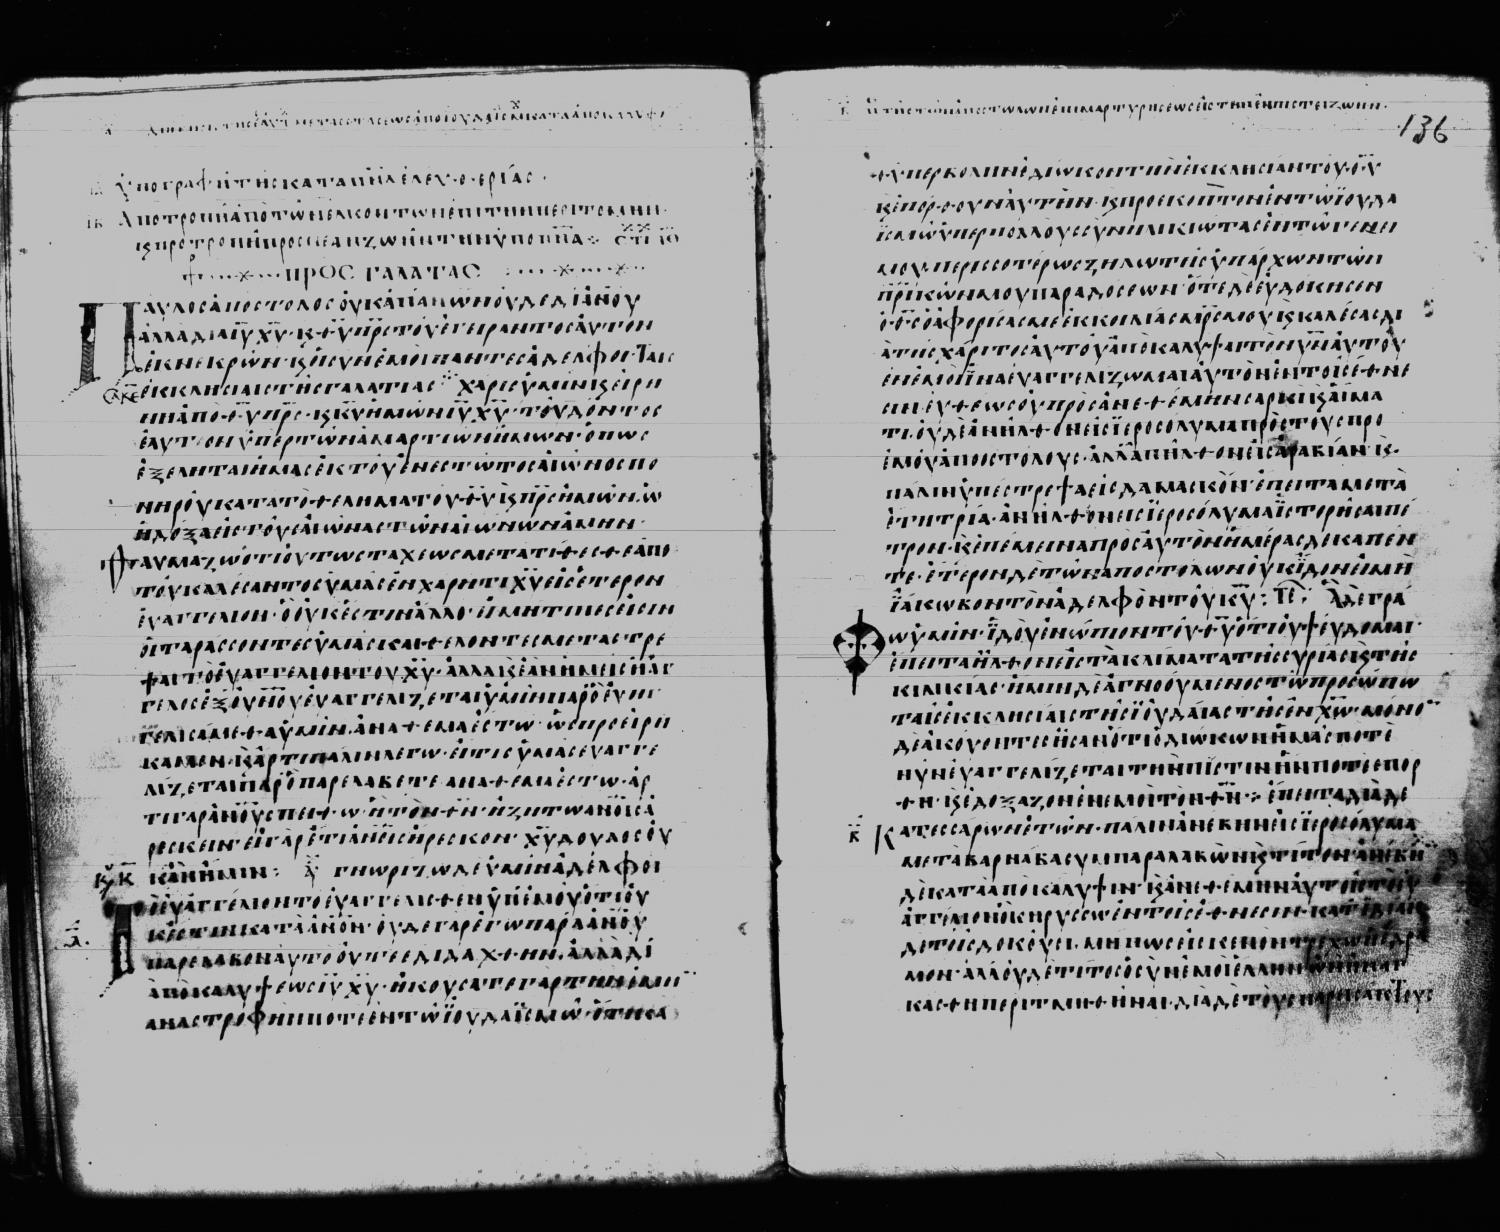 ὑπογραφὴ τῆς κατὰ π̅ν̅α ἐλευθερίας·
Ἀποτροπὴ ἀπὸ τῶν ἑλκόντων ἐπὶ τὴν περιτομὴν·
ΠΡΟΣ ΓΑΛΑΤΑΣ
Παυλος ἀποστολος οὐκ ἀπ ἀνων οὐδε δι ἀνου
ἀλλα δια ιυ χυ· κ θυ πρς του ἐγειραντος αὐτον
ἐκ νεκρων· κ οἱ συν ἐμοι παντες ἀδελφοι· Ταις
ἐκκλησιαις της γαλατιας χαρις ὑμιν κ εἰρη
νη ἀπο θυ πρς· κ κυ ἡμων ιυ χυ· του δοντος
ἑαυτον ὑπερ των ἁμαρτιων ἡμων· ὁπως
ἐξεληται ἡμας ἐκ του ἐνεστωτος αἰωνος πο
νηρου κατα το θεληματου θυ κ πρς ἡμων· ω
ἡ δοξα εἰς τους αἰωνας των αἰωνων ἀμην·
θαυμαζω ὁτι οὑτως ταχεως μετατιθεσθε ἀπο
του καλεσαντος ὑμας ἐν χαρητι χυ εἰς ἑτερον
εὐαγγελιον· ὁ οὐκ ἐστιν ἀλλο· εἰ μη τινες εἰσιν
οἱ ταρασσοντες ὑμας και θελοντες μεταστρε
ψαι το εὐαγγελιον του χυ· ἀλλα κ ἐαν ἡμεις ἠ ἀγ
γελος ἐξ οὐνου εὐαγγελιζεται ὑμιν παρ ὁ εὐηγ
γελισαμεθα ὑμιν· ἀναθεμα ἐστω· ὡς προειρη
καμεν· κ ἀρτι παλιν λεγω· εἰ τις ὑμας εὐαγγε
λιζεται παρ ὁ παρελαβετε αναθεμα ἐστω· ἀρ
τι γαρ ἀνους πειθω ἠ τον θν· ἠ ζητω ανοις ἀ
ρεσκειν· εἰ γαρ ἐτι ἀνοις ἠρεσκον· χυ δουλος οὐ
κ ἀν ἠμιν· γνωριζω δε ὑμιν ἀδελφοι
το εὐαγγελιον το εὐαγγελισθεν ὑπ ἐμου ὁτι οὐ
κ ἐστιν κατα ἀνον· οὐδε γαρ ἐγω παρα ἀνου
παρελαβον αὐτο οὐτε ἐδιδαχθην· ἀλλα δι
ἀποκαλυψεως ιυ χυ· ἠκουσατε γαρ την ἐμην
αναστροφην ποτε ἐν τω ἰουδαισμω· ὁτι κα
136
θ υπερβολην ἐδιωκον την ἐκκλησιαν του θυ
κ ἐπορθουν αὐτην· κ προεκοπτον ἐν τω ἰουδα
ισμω ὑπερ πολλους συνηλικιωτας ἐν τω γενει
μου· περισσοτερως ζηλωτης ὑπαρχων των
πρικων μου παραδοσεων· ὁτε δε εὐδοκησεν
ὁ θς ὁ ἀφορισας με ἐκ κοιλιας μρς μου κ καλεσας δι
α της χαριτος αὐτου ἀποκαλυψαι τον υν αὐτου
ἐν ἐμοι ινα εὐαγγελιζωμαι αὐτον ἐν τοις ἐθνε
σιν· εὐθεως οὐ προσανεθεμην σαρκι κ αιμα
τι· οὐδε ἀνηλθον εἰς ἱεροσολυμα προς τους προ
ἐμου ἀποστολους· ἀλλα ἀπηλθον εἰς ἀραβιαν· κ
παλιν ὑπεστρεψα εἰς δαμασκον· ἐπειτα μετα
ἐτη τρια· ἀνηλθον εἰς ἱεροσολυμα ἱστορησαι πε
τρον· κ ἐπεμεινα προς αὐτον ἡμερας δεκαπεν
τε· ἑτερον δε των αποστολων οὐκ ιδον εἰ μη
ἰακωβον τον ἀδελφον του κυ: τε ἁ δε γρα
φω ὑμιν· ἰδου ἐνωπιον του θυ ὁτι οὐ ψευδομαι·
ἐπειτα ηλθον εἰς τα κλιματα της συριας κ της
κιλικιας· ἠμην δε ἀγνοουμενος τω προσωπω
ταις ἐκκλησιαις της ἰουδαιας της ἐν χω· μονο
δε ἀκουοντες ησαν ὁτι ὁ διωκων ἡμας ποτε
νυν εὐαγγελιζεται την πιστιν ην ποτε ἐπορ
θη· κ ἐδοξαζον ἐν ἐμοι τον θν· ἐπειτα δια δε
κατεσσαρων ἐτων· παλιν ἀνεβην εἰς ἱεροσολυμα
μετα βαρναβα συμπαραλαβων κ τιτον ἀνεβην
δε κατα ἀποκαλυψιν· κ ἀνεθεμην αὐτοις το εὐ
αγγελιον ὁ κηρυσσω ἐν τοις ἐθνεσιν· κατ ἰδιαν
δε τοις δοκουσι· μη πως εἰς κενον τρεχω ἠ ἐδρα
μον· αλλ οὐδε τιτος ὁ συν ἐμοι ἑλλην ὠν ἠναγ
κασθη περιτμηθηναι· δια δε τους παρεισακτους